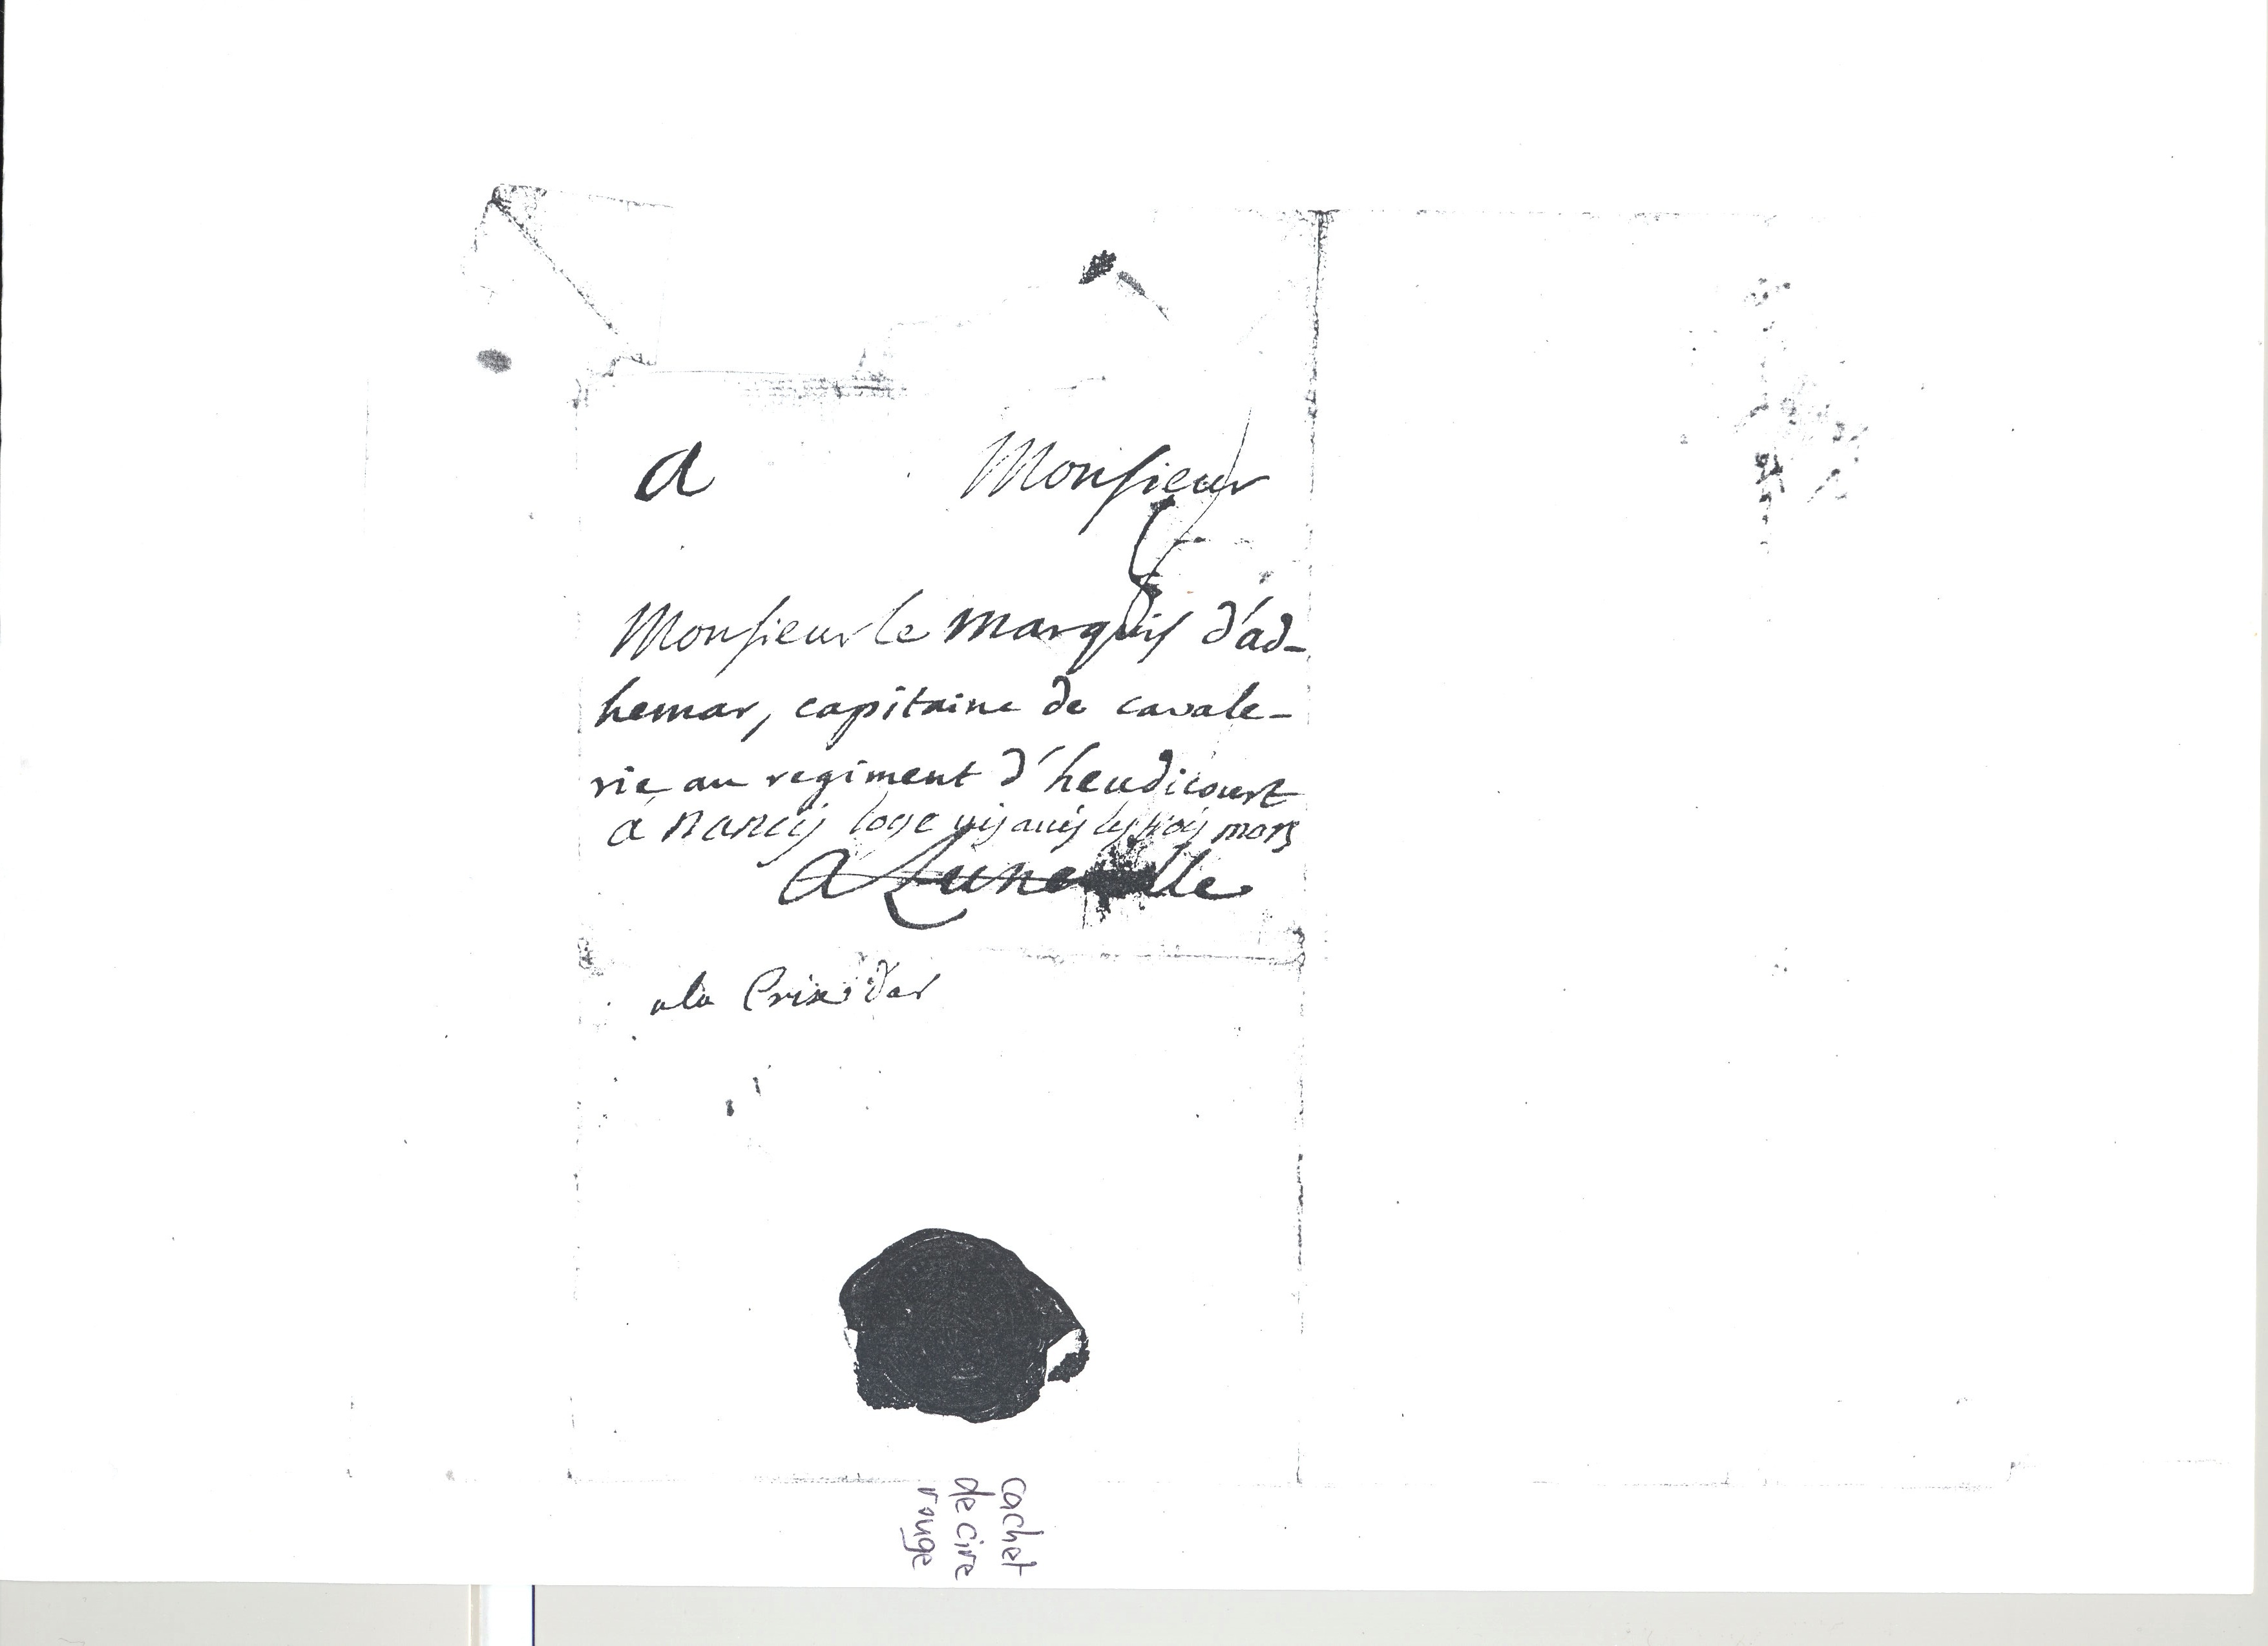 a Monsieur
Monsieur le marquis d'ad-
hemar, capitaine de cavale-
rie au regiment d'heudicourt
a nancy loge vis avis les trois mors
A Luneville
a la Croix d'or
cachet
de cire
rouge